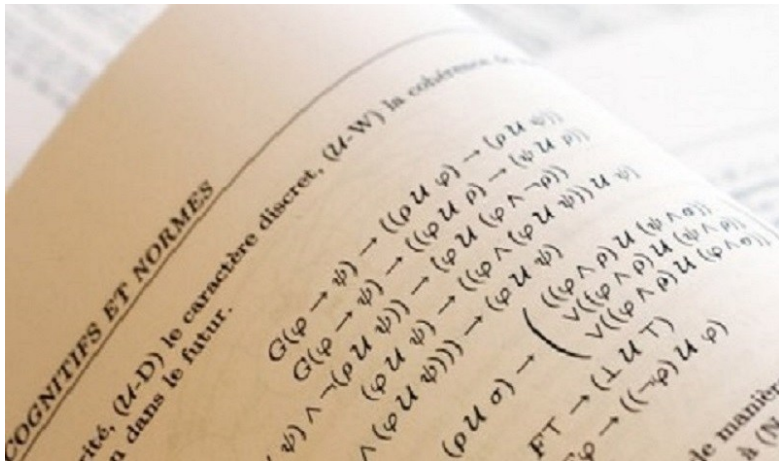 COGNITIFS ET NORMES
rité, (U-D) le caractère discret, (U-W) la cohérence de
n dans le futur.
G(φ → ψ) → ((ρ U φ) → (ρ U ψ))
G(φ → ψ) → ((φ U ρ) → (ψ U ρ))
ψ) ∧ ¬(ρ U ψ)) → (φ U (φ ∧ ¬ρ))
(φ U ψ) → ((φ ∧ (φ U ψ)) U ψ)
∧ (φ U ψ))) → (φ U ψ)
(ρ U σ) → ( ((φ ∧ ρ) U (ψ ∧ σ))
∨((φ ∧ ρ) U (ψ ∧ ρ))
∨((φ ∧ ρ) U (φ ∧ σ))
F⊤ → (⊥ U ⊤)
φ → ((¬φ) U φ)
de manière
à (N